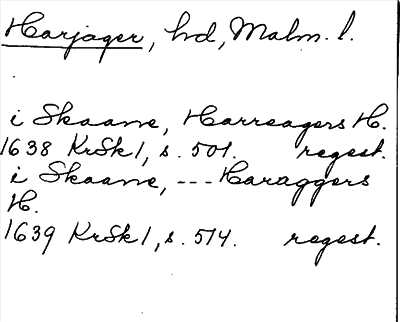 Harjager, hd, Malm. l.
i Skaane, Harreagers H.
1638 KrSk1, s. 501. regest.
i Skaane, --- Haraggers
H.
1639 KrSk1, s. 514. regest.